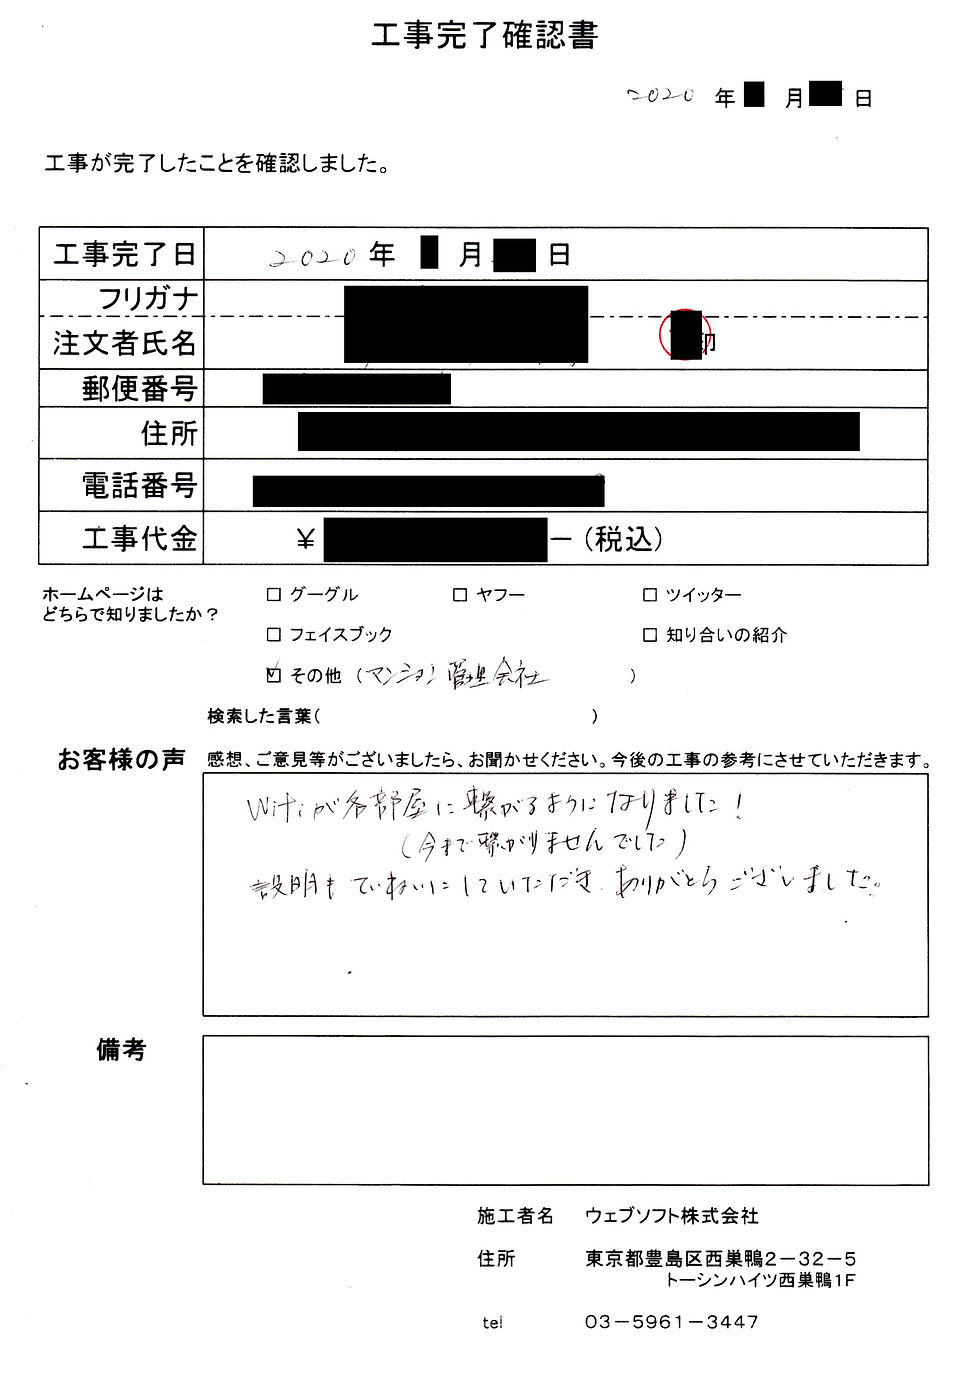 工事完了確認書
2020 年 月 日
工事が完了したことを確認しました。
工事完了日 2020 年 月 日
フリガナ
注文者氏名 印
郵便番号
住所
電話番号
工事代金 ¥ ー (税込)
ホームページは
どちらで知りましたか?
□ グーグル □ ヤフー □ ツイッター
□ フェイスブック □ 知り合いの紹介
☑ その他 (マンション管理会社 )
検索した言葉( )
お客様の声 感想、ご意見等がございましたら、お聞かせください。今後の工事の参考にさせていただきます。
Wifiが各部屋に繋がるようになりました!
(今まで繋がりませんでした)
説明もていねいにしていただき、ありがとうございました。
備考
施工者名 ウェブソフト株式会社
住所 東京都豊島区西巣鴨2-32-5
トーシンハイツ西巣鴨1F
tel 03-5961-3447